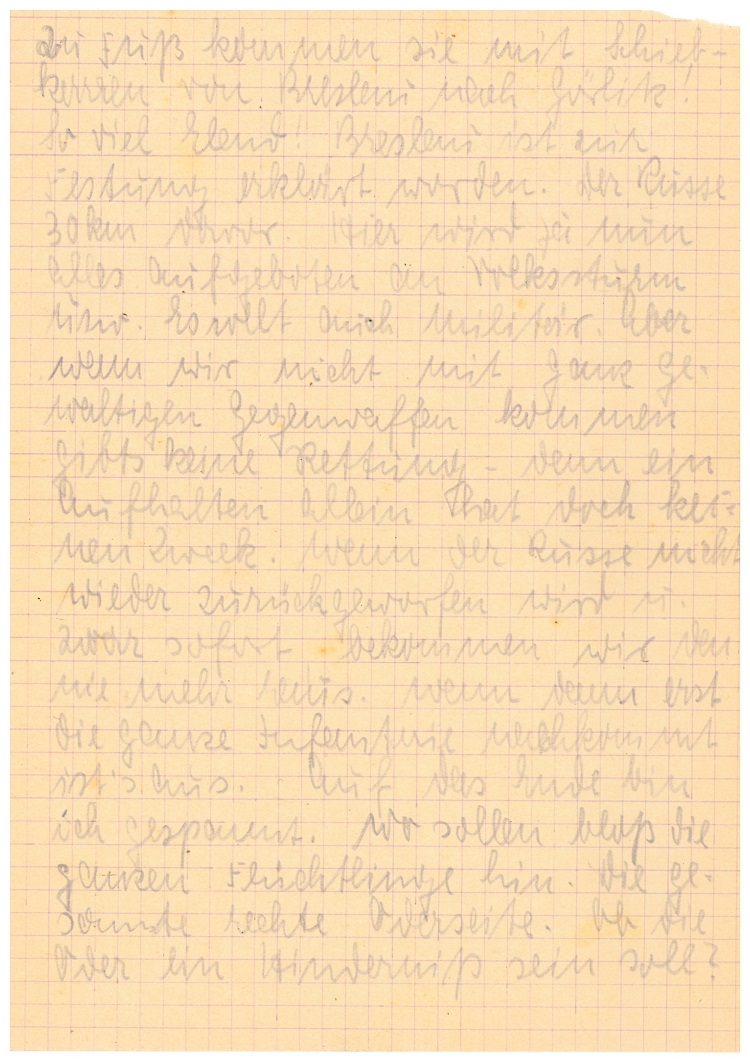 Zu Fuß kommen sie mit Schieb-
karren von Breslau nach Görlitz!
So viel Elend! Breslau ist zur
Festung erklärt worden. Der Russe
30 km davor. Hier wird ja nun
alles aufgeboten an Volkssturm
usw. Es rollt auch Militär. Aber
wenn wir nicht mit ganz ge-
waltigen Gegenwaffen kommen
gibts keine Rettung – denn ein
Aufhalten allein hat doch kei-
nen Zweck. Wenn der Russe nicht
wieder zurückgeworfen wird u.
zwar sofort bekommen wir den
nie mehr raus. Wenn dann erst
die ganze Infantrie nachkommt
ist's aus. Auf das Ende bin
ich gespannt. Wo sollen bloß die
ganzen Flüchtlinge hin. Die ge-
samte rechte Oderseite. Ob die
Oder ein Hinderniß sein soll?